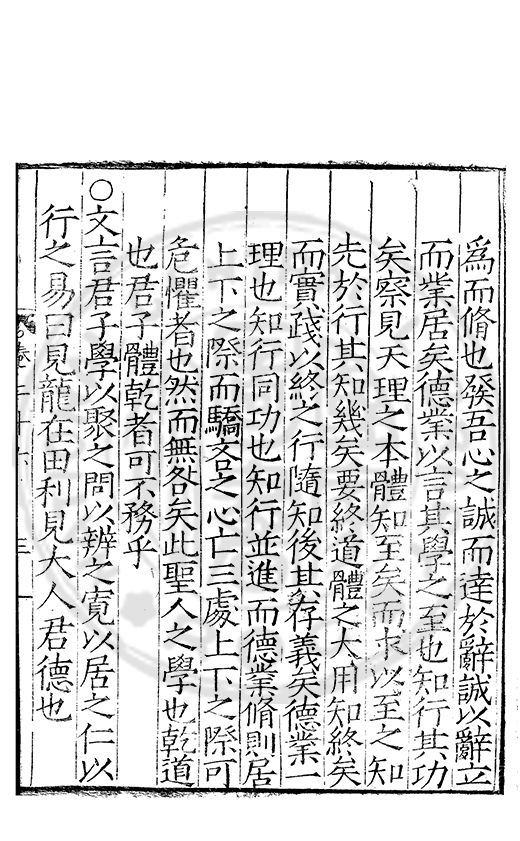 爲而脩也發吾心之誠而達於辭誠以辭立
而業居矣德業以言其學之至也知行其功
矣察見天理之本體知至矣而求以至之知
先於行其知幾矣要終道體之大用知終矣
而實踐以終之行隨知後其存義矣德業一
理也知行同功也知行並進而德業脩則居
上下之際而驕吝之心亡三處上下之際可
危懼者也然而無咎矣此聖人之學也乾道
也君子體乾者可不務乎
○文言君子學以聚之問以辨之寬以居之仁以
行之易曰見龍在田利見大人君德也
卷二十六 三